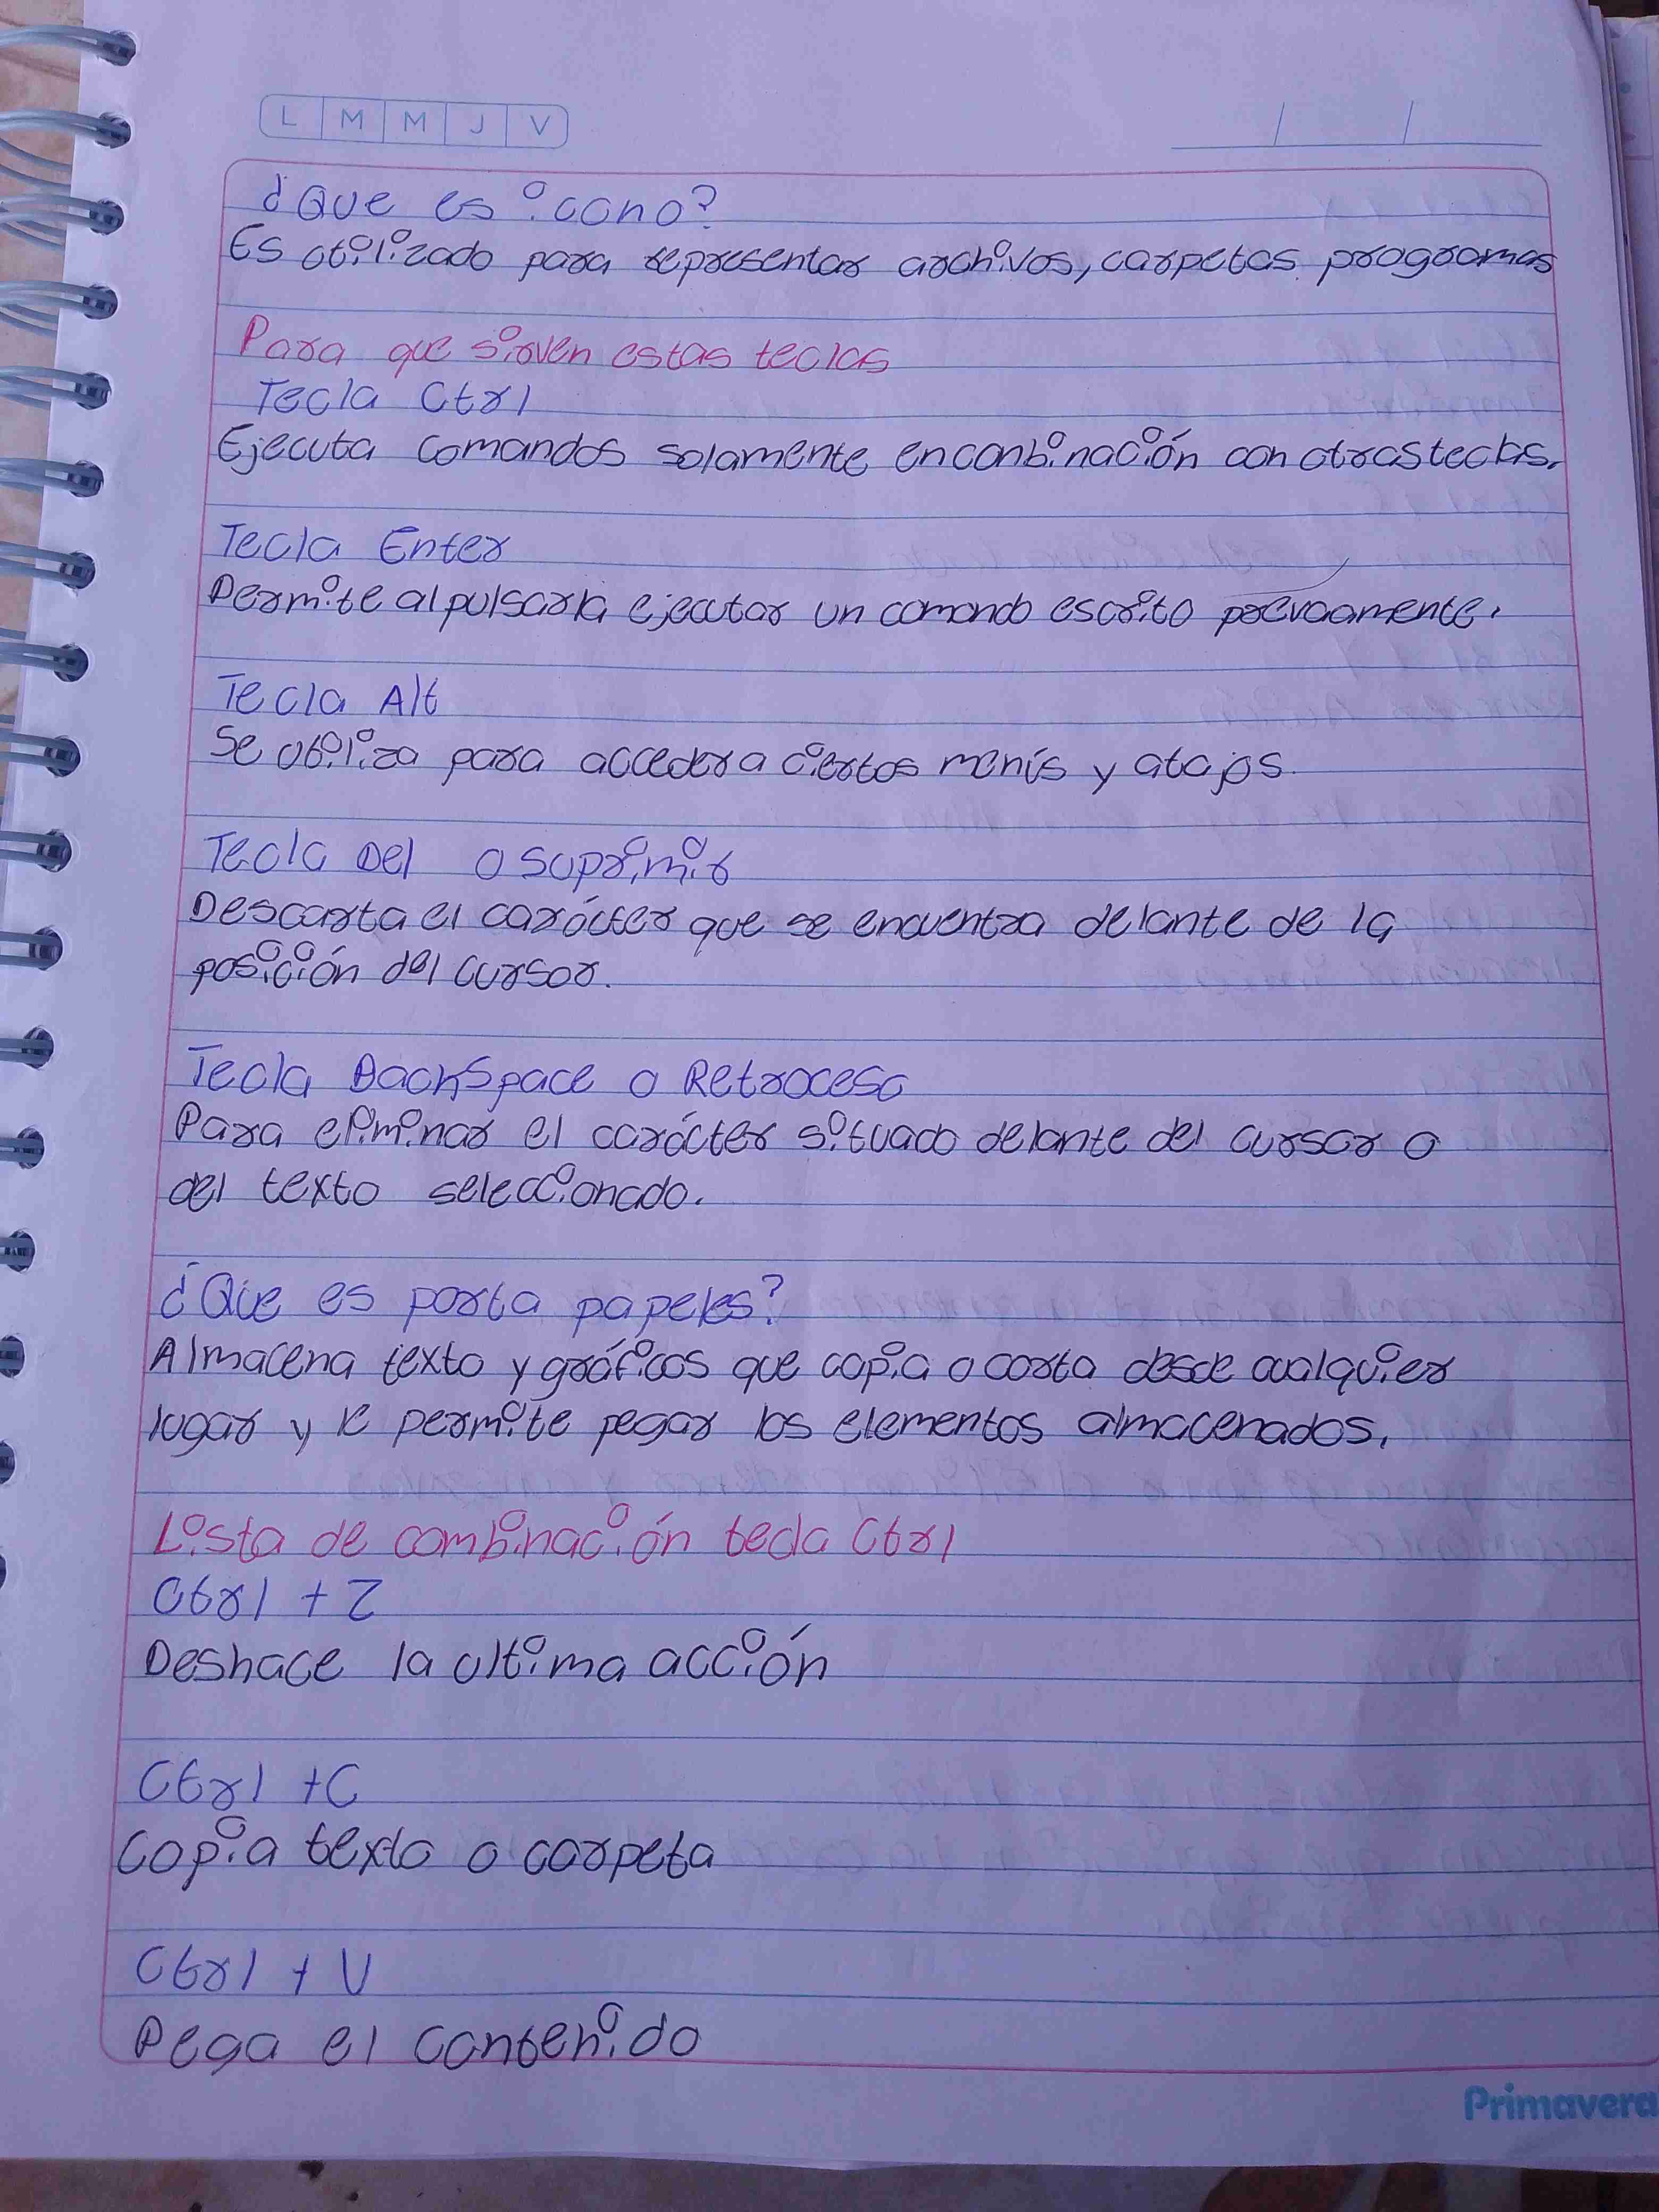 L M M J V
¿Que es icono?
Es utilizado para representar archivos, carpetas programas
Para que sirven estas teclas
Tecla Ctrl
Ejecuta comandos solamente en conbinación con otras teclas.
Tecla Enter
Permite al pulsarla ejecutar un comando escrito prevaamente.
Tecla Alt
Se utiliza para acceder a ciertos menís y atajos.
Tecla Del o suprimir
Descarta el carácter que se encuentra delante de la
posición del cursor.
Tecla BackSpace o Retroceso
Para eliminar el carácter situado delante del cursor o
del texto seleccionado.
¿Que es porta papeles?
Almacena texto y gráficos que copia o corta desde cualquier
lugar y le permite pegar los elementos almacenados.
Lista de combinación tecla Ctrl
Ctrl + Z
Deshace la ultima acción
Ctrl + C
Copia texto o carpeta
Ctrl + V
Pega el contenido
Primavera